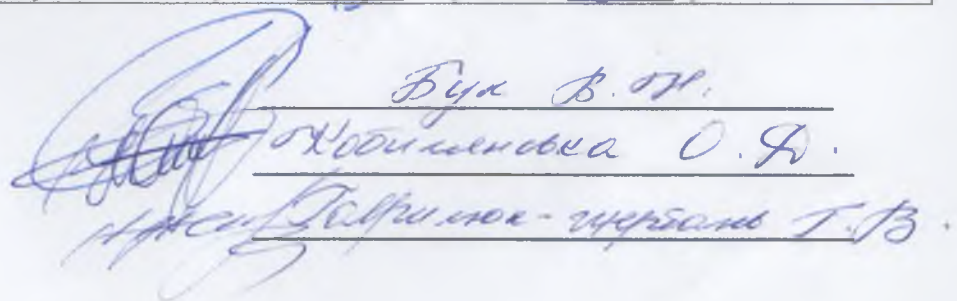 Бук В. М.
Кобилянська О. Д.
Гаврилюк-Щербань Т. В.